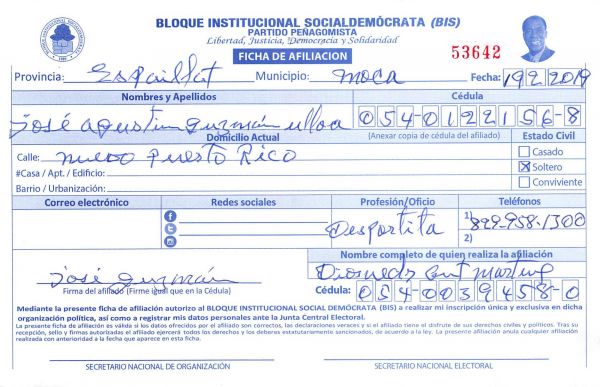 BLOQUE INSTITUCIONAL SOCIALDEMÓCRATA (BIS)
PARTIDO PEÑAGOMISTA
Libertad, Justicia, Democracia y Solidaridad
FICHA DE AFILIACION
53642
Provincia: Espaillat Municipio: moca Fecha: 19 2 2019
Nombres y Apellidos Cédula
josé agustin guzmán ulloa 054-0122156-8
Domicilio Actual (Anexar copia de cédula del afiliado) Estado Civil
Calle: nuevo Puerto Rico
Casado
#Casa / Apt. / Edificio: X Soltero
Barrio / Urbanización: Conviviente
Correo electrónico Redes sociales Profesión/Oficio Teléfonos
Desportita 1) 829-958-1300
2)
Nombre completo de quien realiza la afiliación
josé guzmán
Firma del afiliado (Firme igual que en la Cédula) Cédula: 054-0039458-0
Mediante la presente ficha de afiliación autorizo al BLOQUE INSTITUCIONAL SOCIAL DEMÓCRATA (BIS) a realizar mi inscripción única y exclusiva en dicha
organización política, así como a registrar mis datos personales ante la Junta Central Electoral.
La presente ficha de afiliación es válida si los datos ofrecidos por el afiliado son correctos, las declaraciones veraces y si el afiliado tiene el disfrute de sus derechos civiles y políticos. Tras su
recepción, sello y firmas autorizadas el afiliado ejercerá todos los derechos y los deberes estatutariamente sancionados, de acuerdo a la ley. La presente afiliación anula cualquier afiliación
realizada con anterioridad a la fecha que aparece en esta ficha.
SECRETARIO NACIONAL DE ORGANIZACIÓN SECRETARIO NACIONAL ELECTORAL